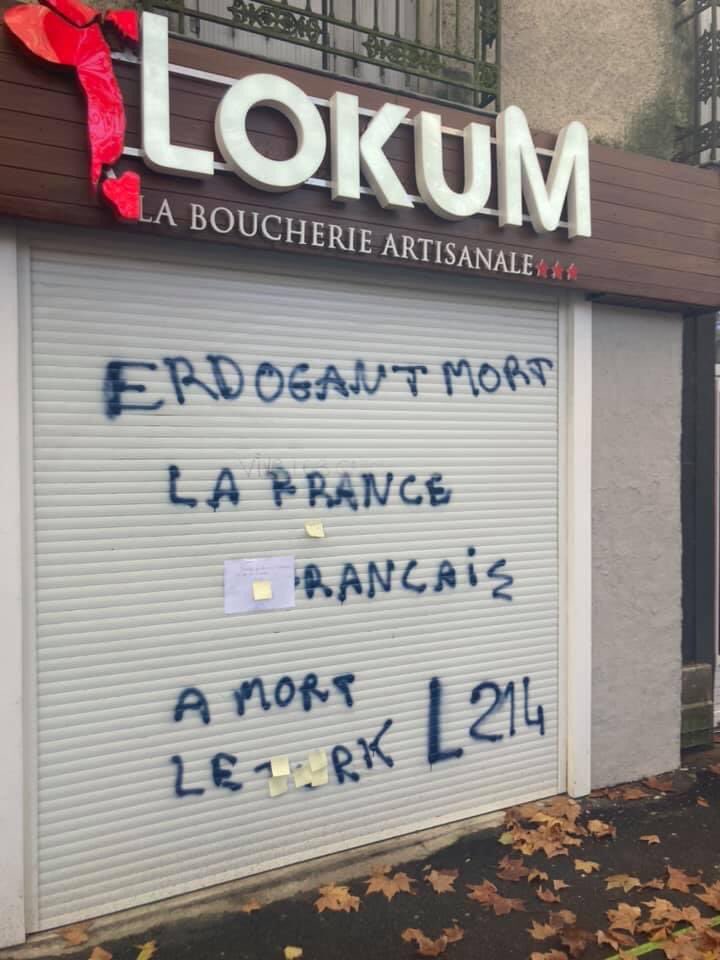 LOKUM
LA BOUCHERIE ARTISANALE
ERDOGANT MORT
LA FRANCE
RANCAIS
A MORT
LE RK L214